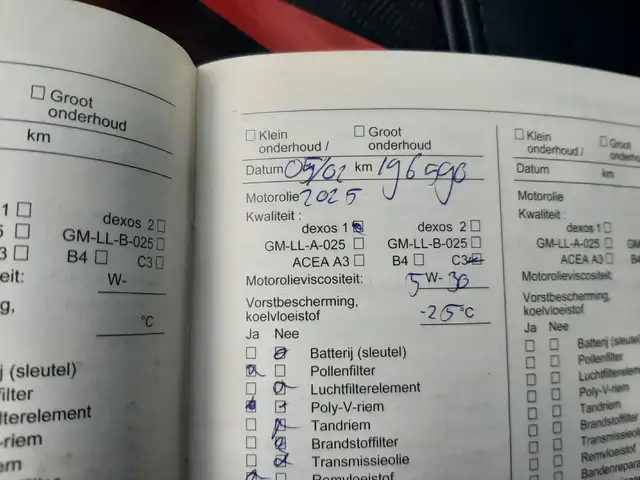 Groot
onderhoud
km
1
dexos 2
5
GM-LL-B-025
3
B4
C3
eit:
W-
g,
°C
j (sleutel)
filter
lterelement
-riem
em
Klein
onderhoud /
Groot
onderhoud
Datum 05/02 km
Motorolie 2025
Kwaliteit :
dexos 1
dexos 2
GM-LL-A-025
GM-LL-B-025
ACEA A3
B4
C3
Motorolieviscositeit: 5 W- 30
Vorstbescherming,
koelvloeistof
-25 °C
Ja Nee
Batterij (sleutel)
Pollenfilter
Luchtfilterelement
Poly-V-riem
Tandriem
Brandstoffilter
Transmissieolie
Remvloeistof
Klein
onderhoud /
Groot
onderhoud
Datum
km
Motorolie
Kwaliteit :
dexos 1
GM-LL-A-025
ACEA A3
Motorolieviscositeit:
Vorstbescherming,
koelvloeistof
Ja Nee
Batterij (sleutel)
Pollenfilter
Luchtfilterelement
Poly-V-riem
Tandriem
Brandstoffilter
Transmissieolie
Remvloeistof
Bandenrepara